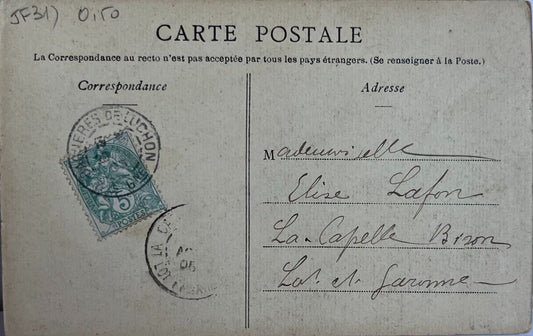 JF31) 0,50
CARTE POSTALE
La Correspondance au recto n'est pas acceptée par tous les pays étrangers. (Se renseigner à la Poste.)
Correspondance
Adresse
BAGNERES DE LUCHON
5
POSTES
LA C
05
LOT
Mademoiselle
Elise Lafon
La-Capelle Biron
Lot et Garonne